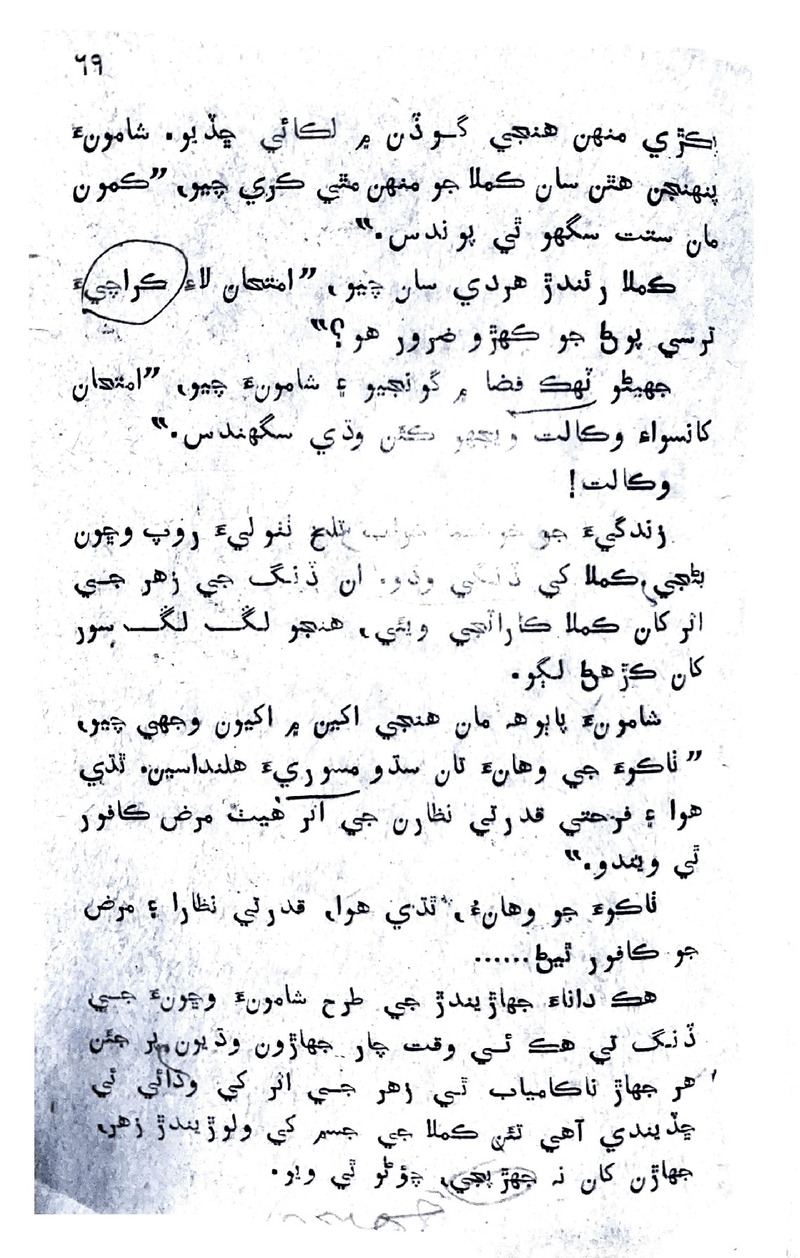 ٦٩
پڪڙي منهن هنجي گوڏن ۾ لڪائي ڇڏيو. شامونءَ
پنهنجن هٿن سان ڪملا جو منهن مٿي ڪري چيو، ”ڪمون
مان ستت سگهو ٿي پوندس.“
ڪملا رئندڙ هردي سان چيو، ”امتحان لاءِ ڪراچيءَ
ترسي پوڻ جو ڪهڙو ضرور هو؟“
جهيڻو ٽهڪ فضا ۾ گونجيو ۽ شامونءَ چيو، ”امتحان
کانسواءِ وڪالت ويجهو ڪٿن وڌي سگهندس.“
وڪالت!
زندگيءَ جو خوشنما خواب تلخ نئوليءَ روپ وڇون
بڻجي ڪملا کي ڏنگي وڌو. ان ڏنگ جي زهر جي
اثر کان ڪملا ڪاراٽجي ويئي، هنجو لڱ لڱ سور
کان ڪڙهڻ لڳو.
شامونءَ پاٻوهہ مان هنجي اکين ۾ اکيون وجهي چيو،
”ناڪوءَ جي وهانءَ تان سڌو مسوريءَ هلنداسين. ٿڌي
هوا ۽ فرحتي قدرتي نظارن جي اثر هيٺ مرض ڪافور
ٿي ويندو.“
ناڪوءَ جو وهانءُ، ٿڌي هوا، قدرتي نظارا ۽ مرض
جو ڪافور ٿيڻ......
هڪ داناءَ جهاڙيندڙ جي طرح شامونءَ وڇونءَ جي
ڏنگ تي هڪ ئي وقت چار جهاڙون وڌيون پر جئن
هر جهاڙ ناڪامياب ٿي زهر جي اثر کي وڌائي ئي
ڇڏيندي آهي تئن ڪملا جي جسم کي ولوڙيندڙ زهر،
جهاڙن کان نہ جهڙپجي، چؤڻو ٿي ويو.